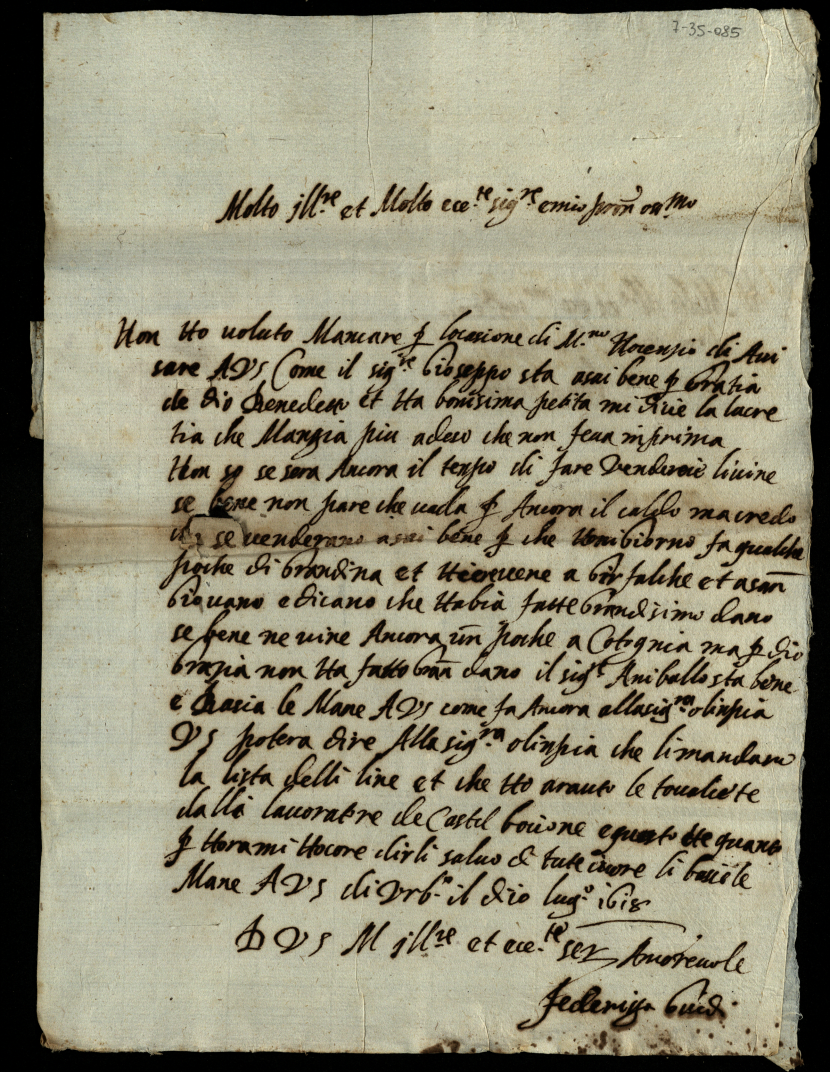 7-35-085
Molto jll.re et Molto ece.te sig.re e mio pron oss.mo
Non Ho voluto Mancare p locasione di M.no Nocensio di Avi
sare A VS Come il sig.re Gioseppo sta asai bene p Gratia
de dio Benedetto et Ha bonisima petita mi dicie la lucre
tia che Mangia piu adeso che non feva inprima
Non so se sara Ancora il tenpo di fare venderece li vine
se bene non pare che vada p Ancora il caldo ma credo
che se venderano asai bene p che Honi giorno fa qualche
poche di Grandina et Hier vene a Gir falche et a san
Giovano e dicano che Habia fatte Grandisimo dano
se bene ne vine Ancora un poche a Cotognia ma p dio
Grazia non Ha fatto Gran dano il sig.r Aniballo sta bene
e Basia le Mane A VS come fa Ancora alla sig.ra olinpia
VS potera dire Alla sig.ra olinpia che li mandaro
la lista delli line et che Ho arauto le tovaliete
dalla lavoratre de Castel bocione e questo ète quanto
p Hora mi Hocore dirli salvo di tute cuore li bacie le
Mane A VS di Vrb.o il dio lug.o 1618
D VS M jll.re et ece.te ser Amorevole
Federigga Guidi